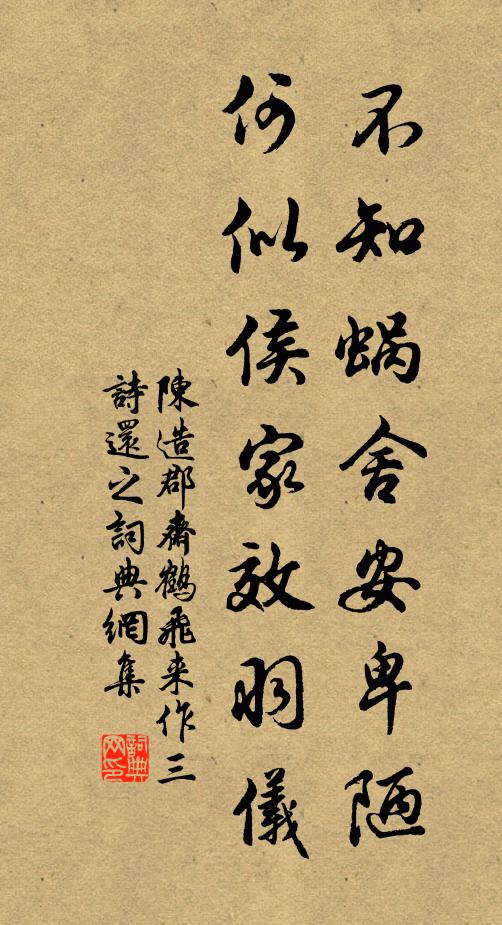 不知蝸舍安卑陋
何似侯家效羽儀
陳造郡齋鶴飛来作三
詩還之詞典網集
詞典
网印